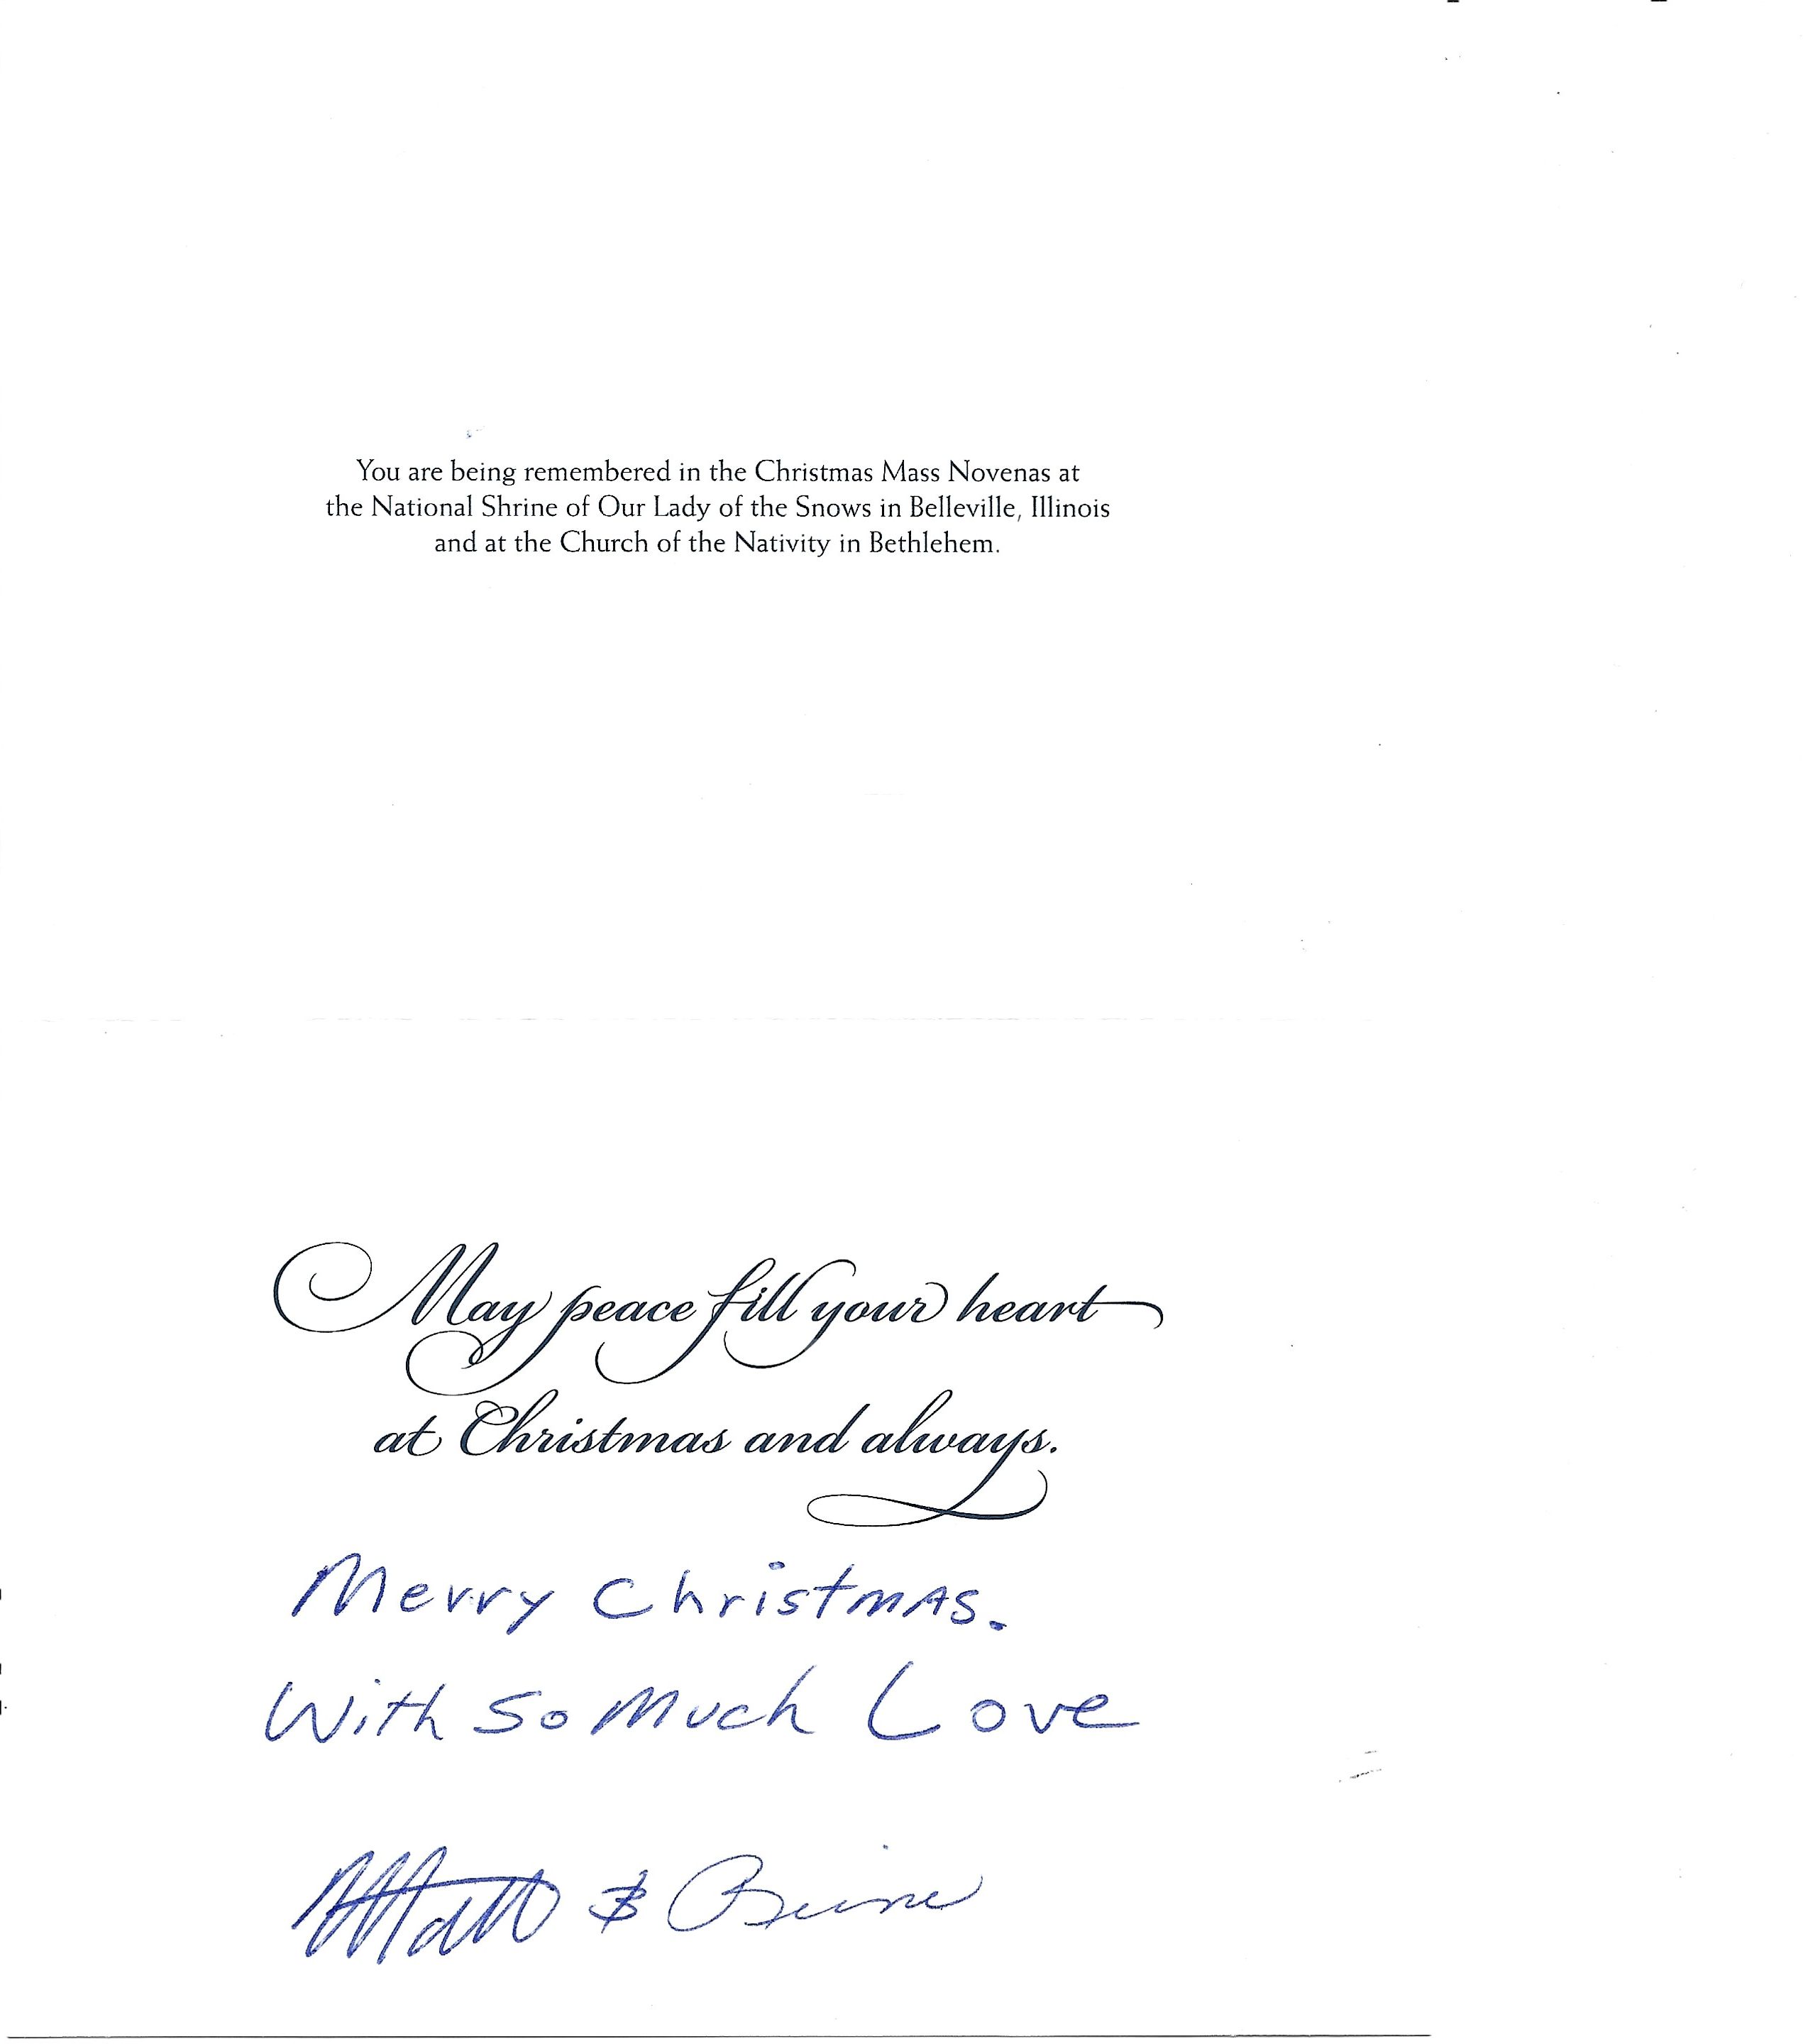 You are being remembered in the Christmas Mass Novenas at
the National Shrine of Our Lady of the Snows in Belleville, Illinois
and at the Church of the Nativity in Bethlehem.
May peace fill your heart
at Christmas and always.
Merry Christmas.
With so Much Love
Matt &